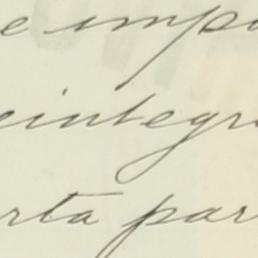 e impo
eintegr
rta par